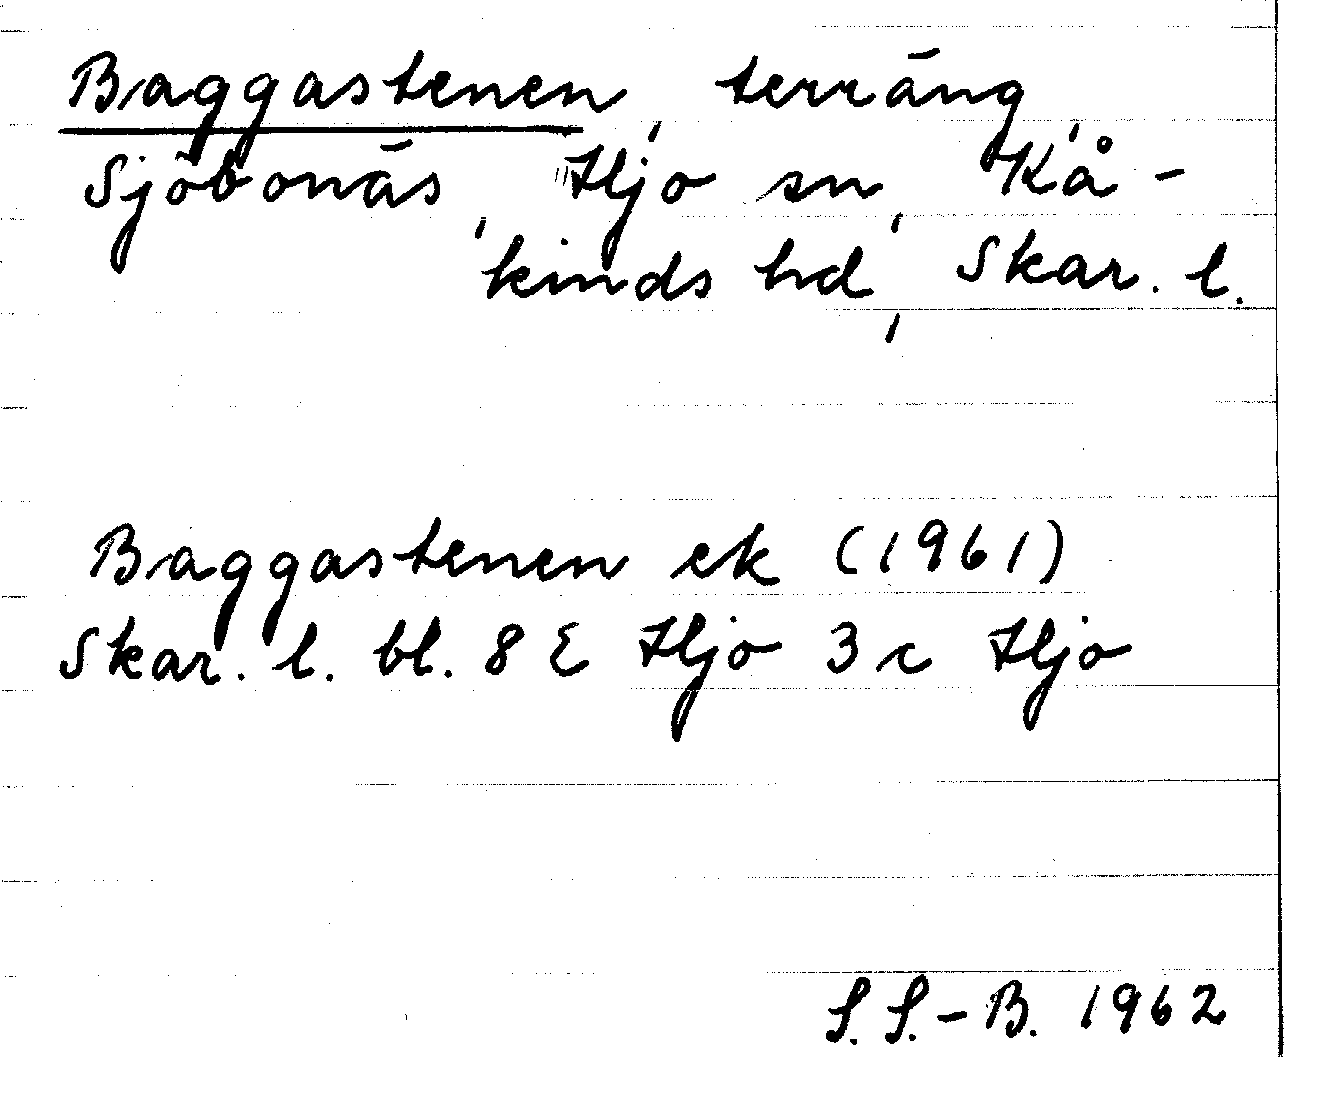 Baggastenen, terräng,
Sjöbonäs, Hjo sn, Kå-
kinds hd, Skar. l.
Baggastenen ek (1961)
Skar. l. bl. 8 E Hjo 3 c Hjo
S. S.-B. 1962